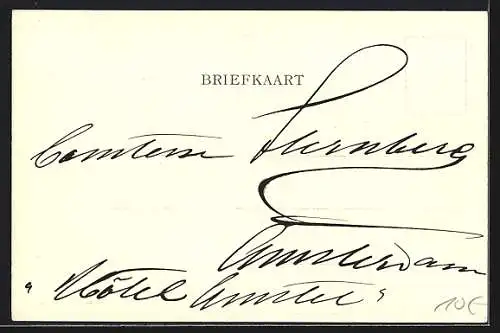 BRIEFKAART
Comtesse Sternberg
Amsterdam
"Hôtel Amstel"
10€